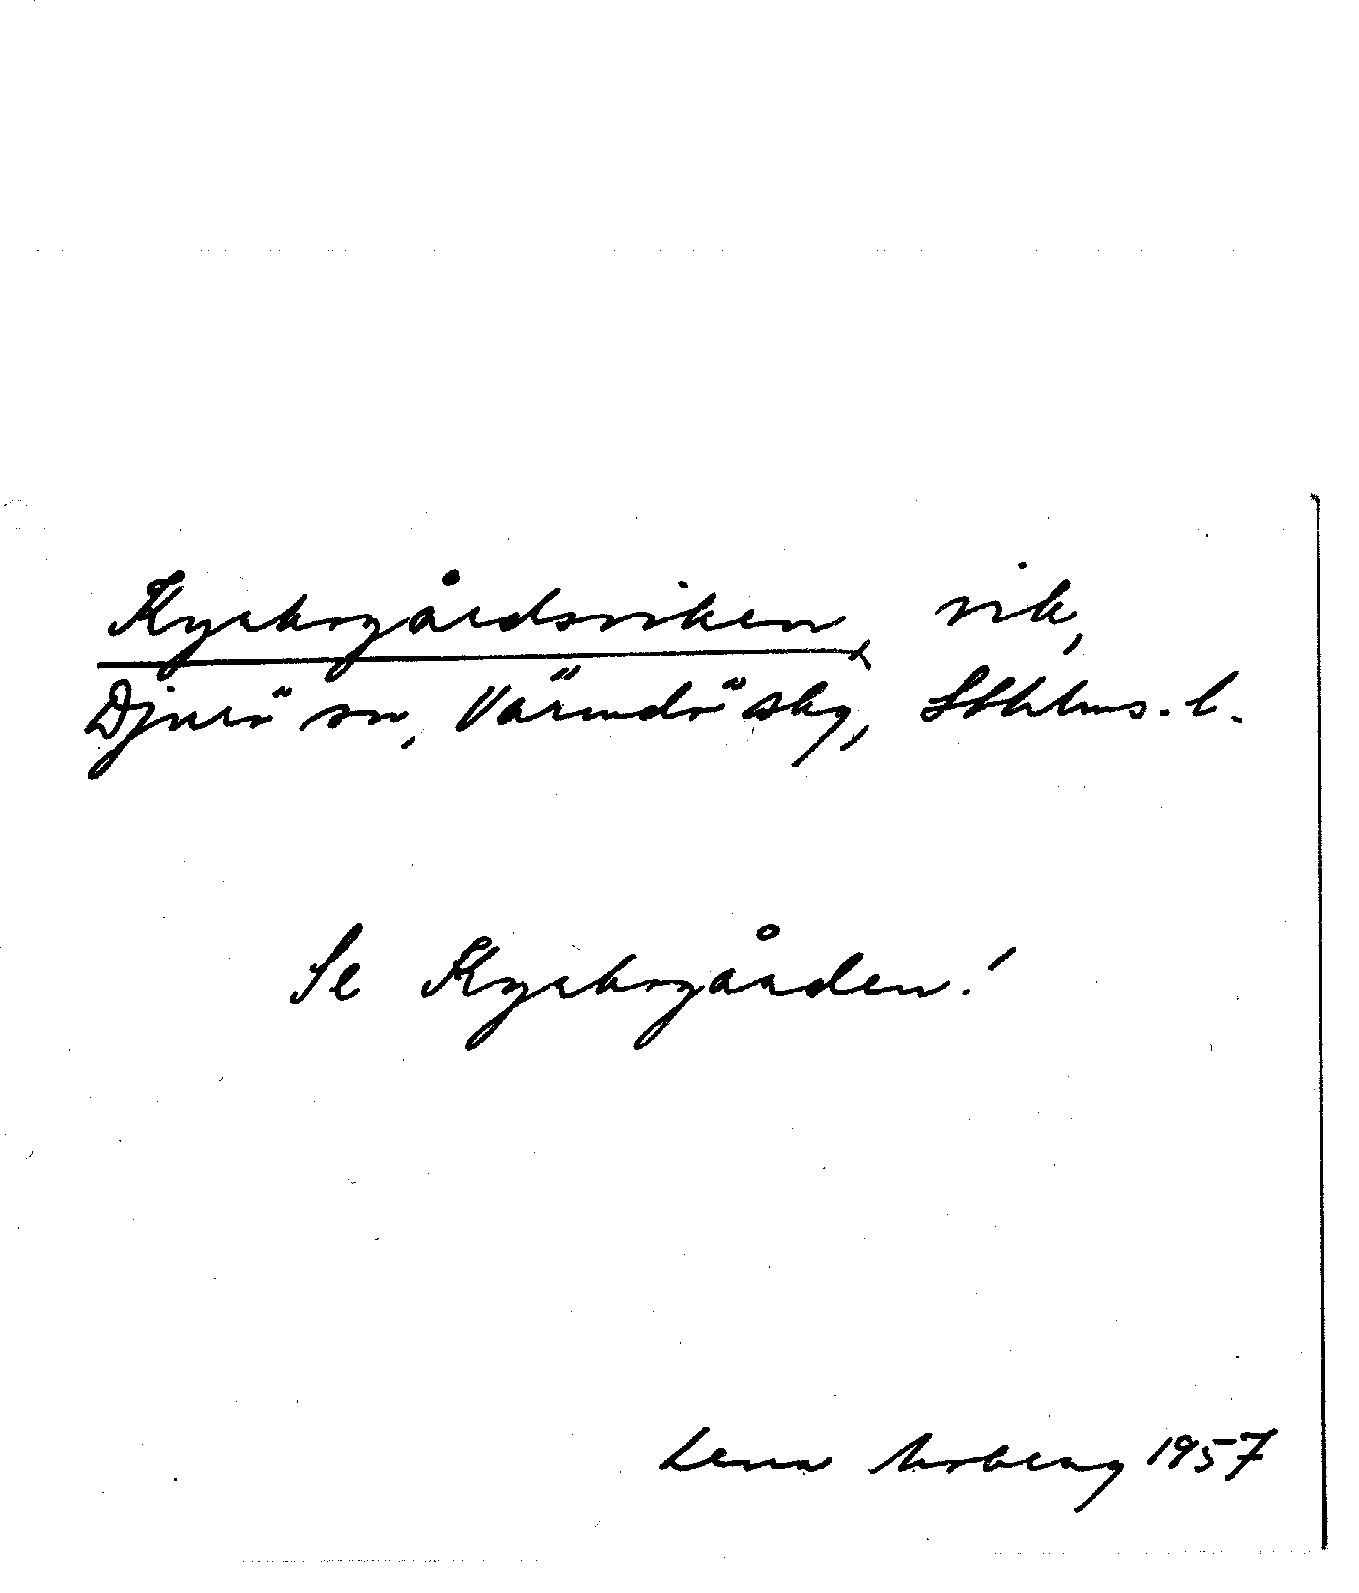 Kyrkogårdsviken, vik,
Djurö sn, Värmdö skg, Sthlms. l.
Se Kyrkogården!
Lena Moberg 1957